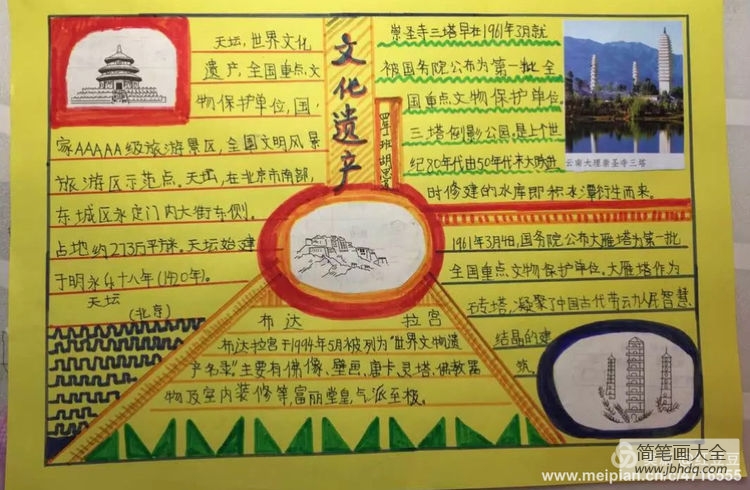 文化遗产
四年一班胡思
天坛,世界文化
遗产,全国重点文
物保护单位,国
家AAAAA级旅游景区,全国文明风景
旅游区示范点。天坛,在北京市南部,
东城区永定门内大街东侧。
占地约273万平米。天坛始建
于明永乐十八年(1420年)。
天坛
(北京)
崇圣寺三塔早在1961年3月就
被国务院公布为第一批全
国重点文物保护单位。
三塔倒影公园,是上个世
纪80年代由50年代末大跃进
时修建的水库即积水潭衍生而来。
云南大理崇圣寺三塔
1961年3月4日,国务院公布大雁塔为第一批
全国重点文物保护单位。大雁塔作为
砖塔,凝聚了中国古代劳动人民智慧
结晶的建
筑。
布达拉宫
布达拉宫于1994年5月被列为"世界文物遗
产名录"主要有佛像、壁画、唐卡、灵塔、佛教器
物及室内装修等,富丽堂皇,气派至极。
简笔画大全
www.jbhdq.com
www.meipian.cn/c/4716555